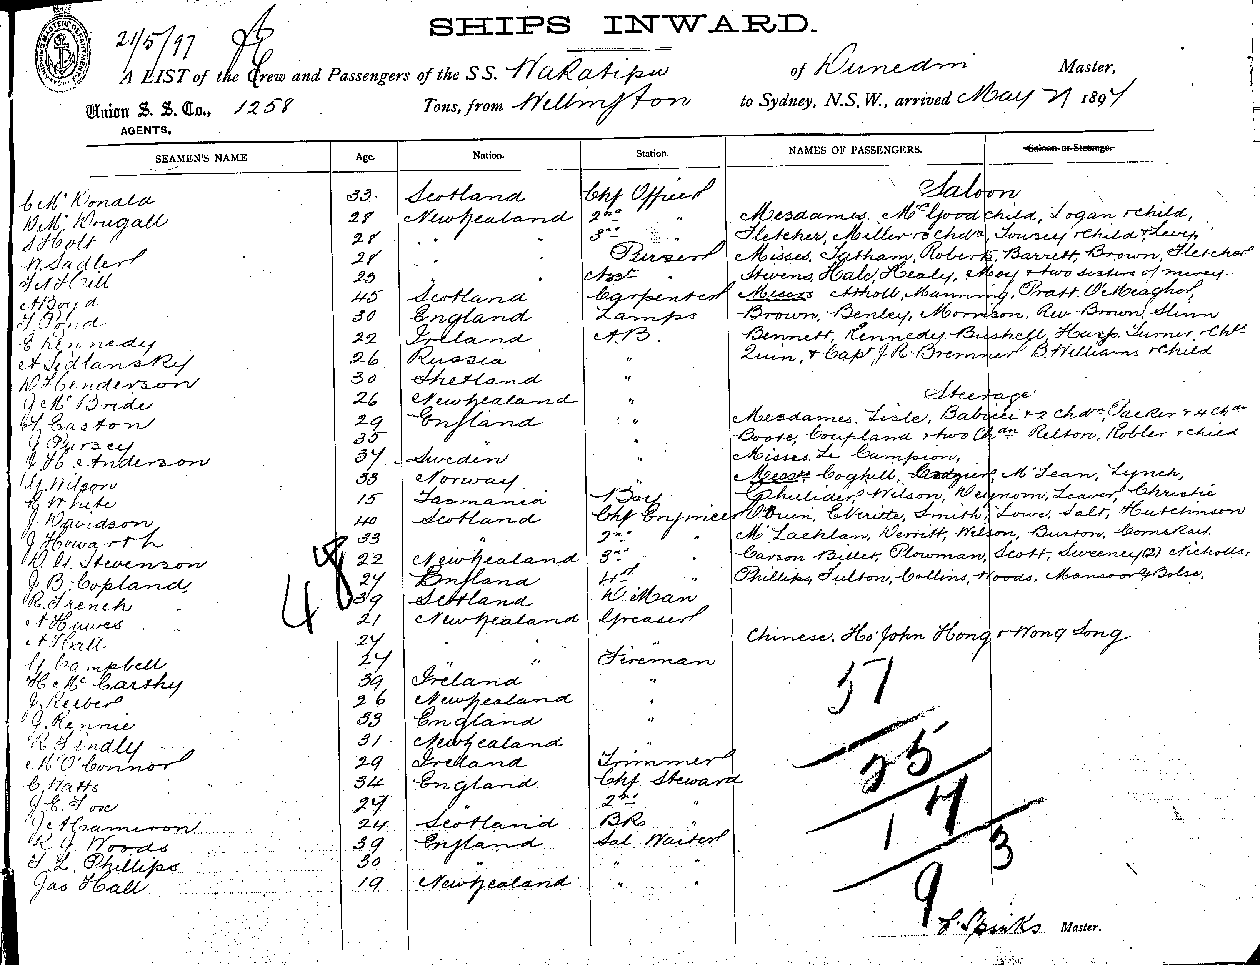 SHIPS INWARD.
21/5/97
A LIST of the Crew and Passengers of the S.S. Wakatipu of Dunedin Master,
Union S. S. Co., 1258 Tons, from Wellington to Sydney, N.S.W., arrived May 21 1897
AGENTS,
SEAMEN'S NAME Age. Nation. Station. NAMES OF PASSENGERS. Saloon or Steerage.
Saloon
C McDonald 33 Scotland Chf Officer
D McDougall 28 New Zealand 2nd " Mesdames. Mrs Goodchild, Logan & child,
S Holt 28 " " 3rd " Fletcher, Miller & chdn, Tousey & child & Levy
W Sadler 28 Purser Misses. Latham, Roberts, Barrett, Brown, Fletcher
Hill 23 " " Asst " Stevens, Hald, Healy, May & two sisters of mercy.
A Boyd 45 Scotland Carpenter Messrs Atholl, Manning, Pratt, O'Meagher,
T Pond 30 England Lamps Brown, Benley, Morrison, Rev Brown, Flinn
C Kennedy 22 Ireland A.B. Bennett, Kennedy, Bushell, Harp, Turner & Cht
A Sedlansky 26 Russia " Quin, & Capt J. R. Bremner B. Williams & child
D Henderson 30 Shetland "
Steerage
J McBride 26 New Zealand "
Easton 29 England " Mesdames. Lisle, Babicci & 2 Chdn, Packer & 4 Chdn
J Pursey 35 " Boote, Coupland & two Chdn Relton, Robler & child
J H Anderson 37 Sweden " Misses. Le Campion,
Wilson 33 Norway " Messrs Coghill, McLean, Lynch,
G White 15 Tasmania Boy Wilson, Leaver, Christie
J Davidson 40 Scotland Chf Engineer Quin, Everitte, Smith, Lowe, Salt, Hutchinson
J Howarth 33 " 2nd " McLachlan, Verritt, Wilson, Burton,
Stevenson 22 New Zealand 3rd " Carson Biller, Plowman, Scott, Sweeney (2) Nicholls,
J B Copland 27 England 4th " Phillips, Fulton, Collins, Woods, Manson & Bolse.
48
R French 39 Scotland D. Man
A Hawes 21 New Zealand Greaser
A Hall 27 " " Chinese. Ho John Hong & Wong Song
Campbell 27 " " Fireman
H McCarthy 39 Ireland "
J Reeber 26 New Zealand "
J Rennie 33 England "
R Findly 31 New Zealand
M O'Connor 29 Ireland Trimmer
C Watts 34 England Chf Steward
J E Fox 27 " 2nd "
J A Crameron 24 Scotland B.R. "
R J Woods 39 England Sal. Waiter
T. L. Phillips 30 " " "
Jas Hall 19 New Zealand " "
57
25
14
9 3
J. Spinks Master.